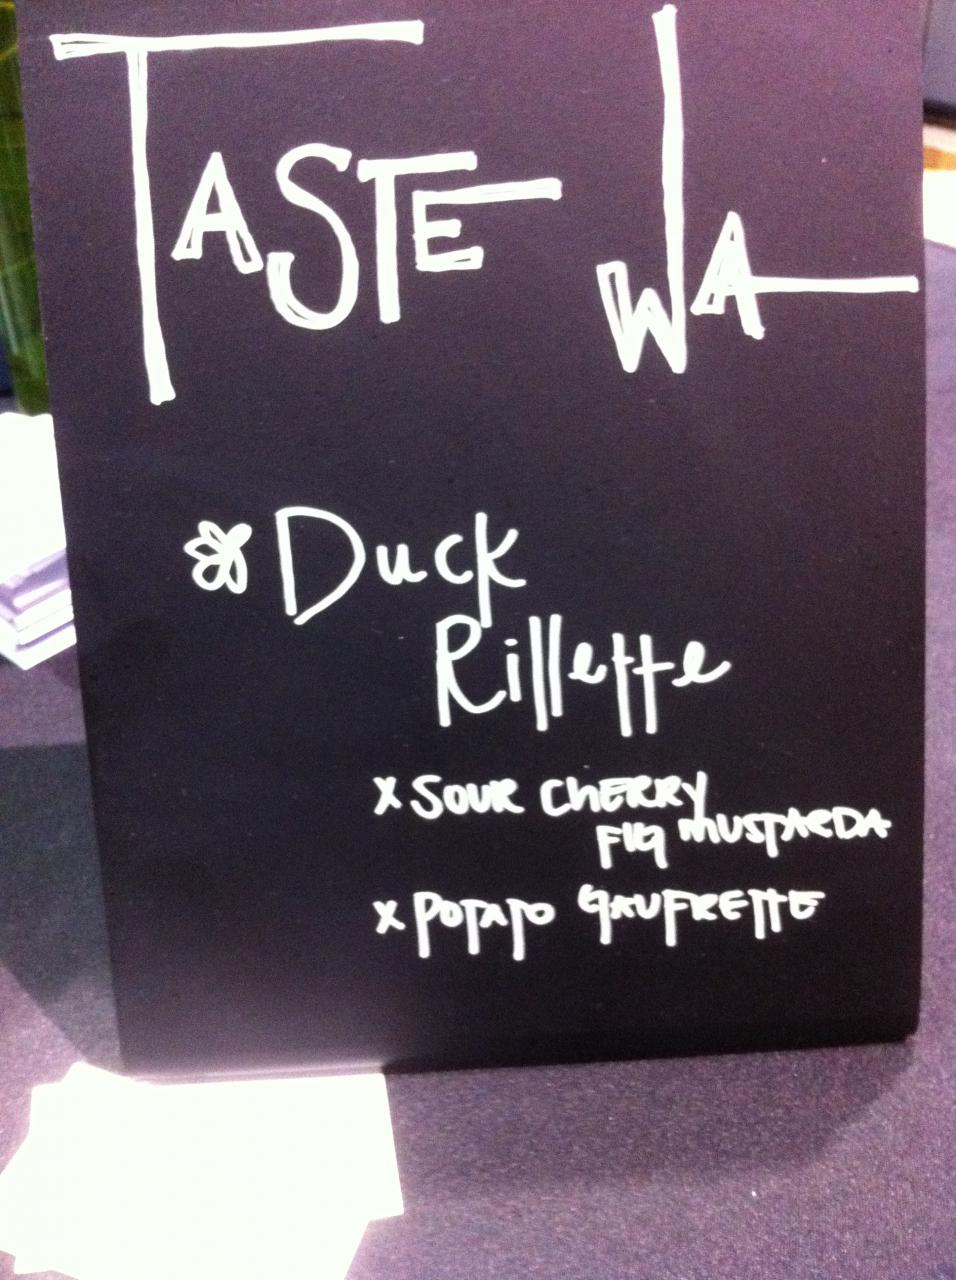 TASTE WA
Duck
Rillette
x SOUR CHERRY
FIG MUSTARDA
x POTATO GAUFRETTE